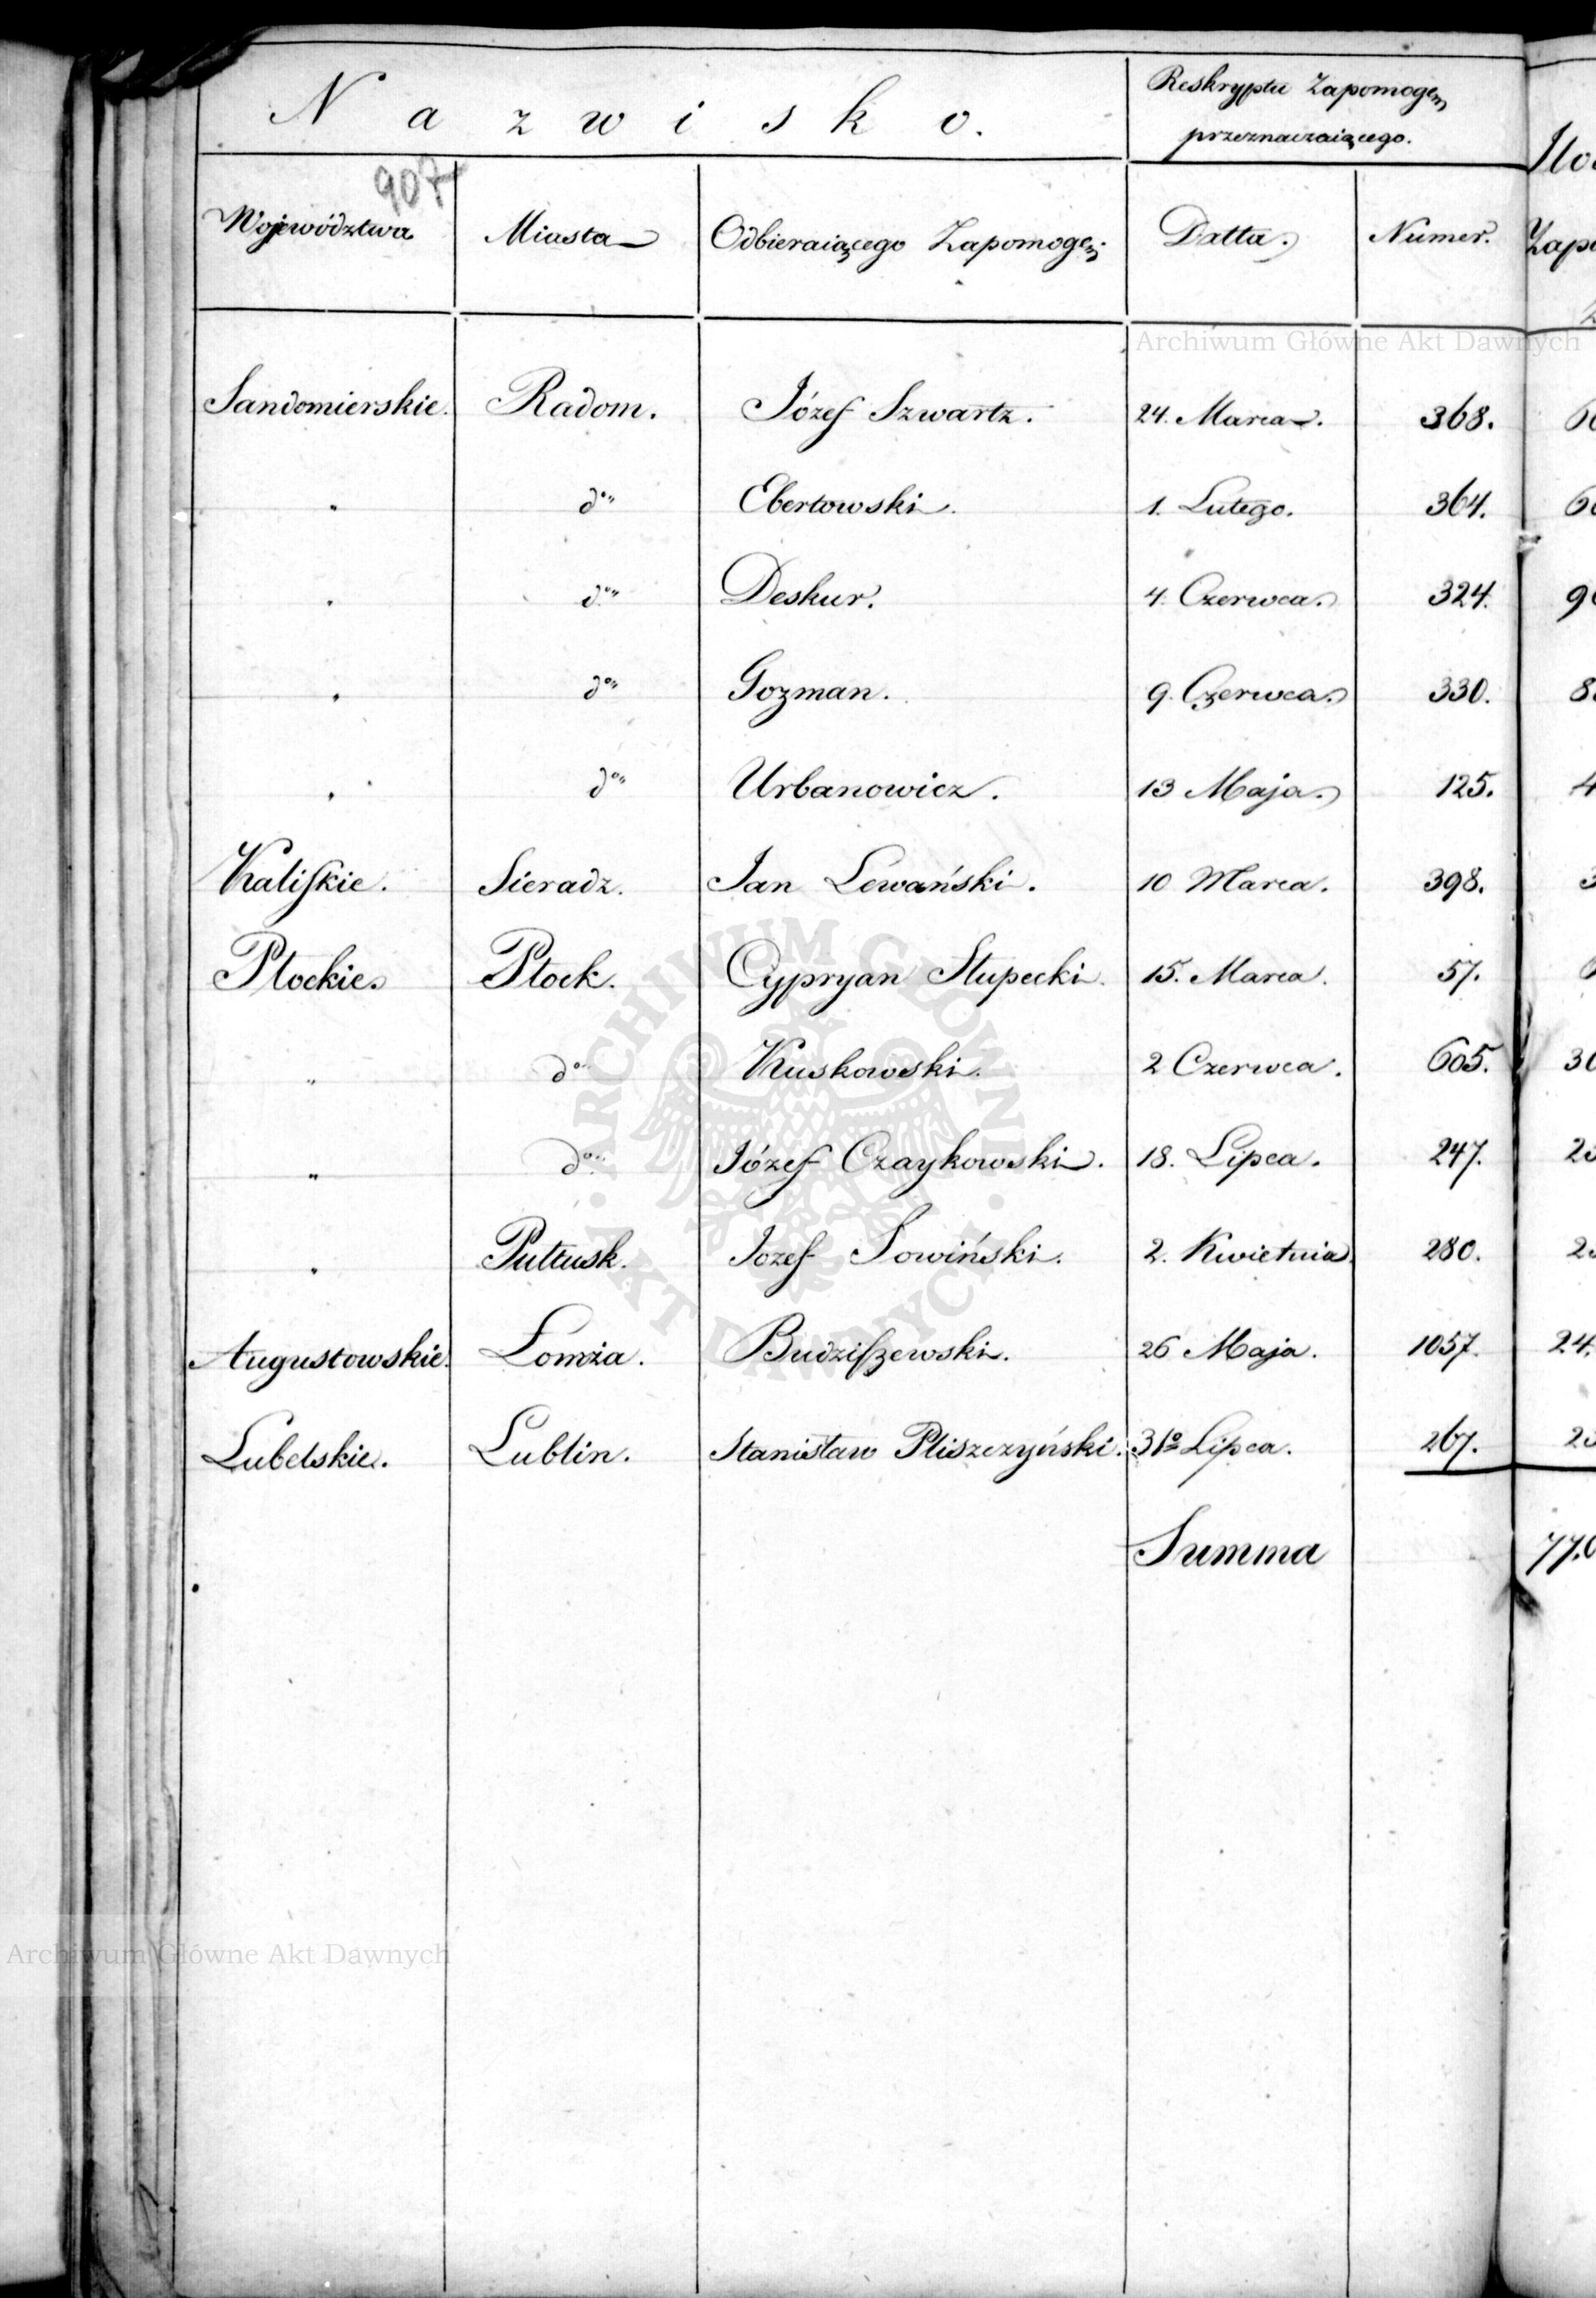 Nazwisko.
Reskryptu Zapomogę
przeznaczaiącego.
907
Województwa
Miasta
Odbieraiącego Zapomogę.
Datta.
Numer.
Archiwum Główne Akt Dawnych
Sandomierskie. Radom. Józef Szwartz. 24. Marca. 368.
" do" Ebertowski. 1. Lutego. 364.
" do" Deskur. 4. Czerwca. 324.
" do" Gozman. 9. Czerwca. 330.
" do" Urbanowicz. 13 Maja. 125.
Kaliſkie. Sieradz. Jan Lewański. 10 Marca. 398.
Płockie. Płock. Cypryan Słupecki. 15. Marca. 57.
" do" Kuskowski. 2 Czerwca. 605.
" do" Józef Czaykowski. 18. Lipca. 247.
" Pułtusk. Jozef Sowiński. 2. Kwietnia. 280.
Augustowskie. Łomża. Budziſzewski. 26 Maja. 1057.
Lubelskie. Lublin. Stanisław Pliszczyński. 31o Lipca. 267.
Summa
ARCHIWUM GŁÓWNE AKT DAWNYCH
Archiwum Główne Akt Dawnych